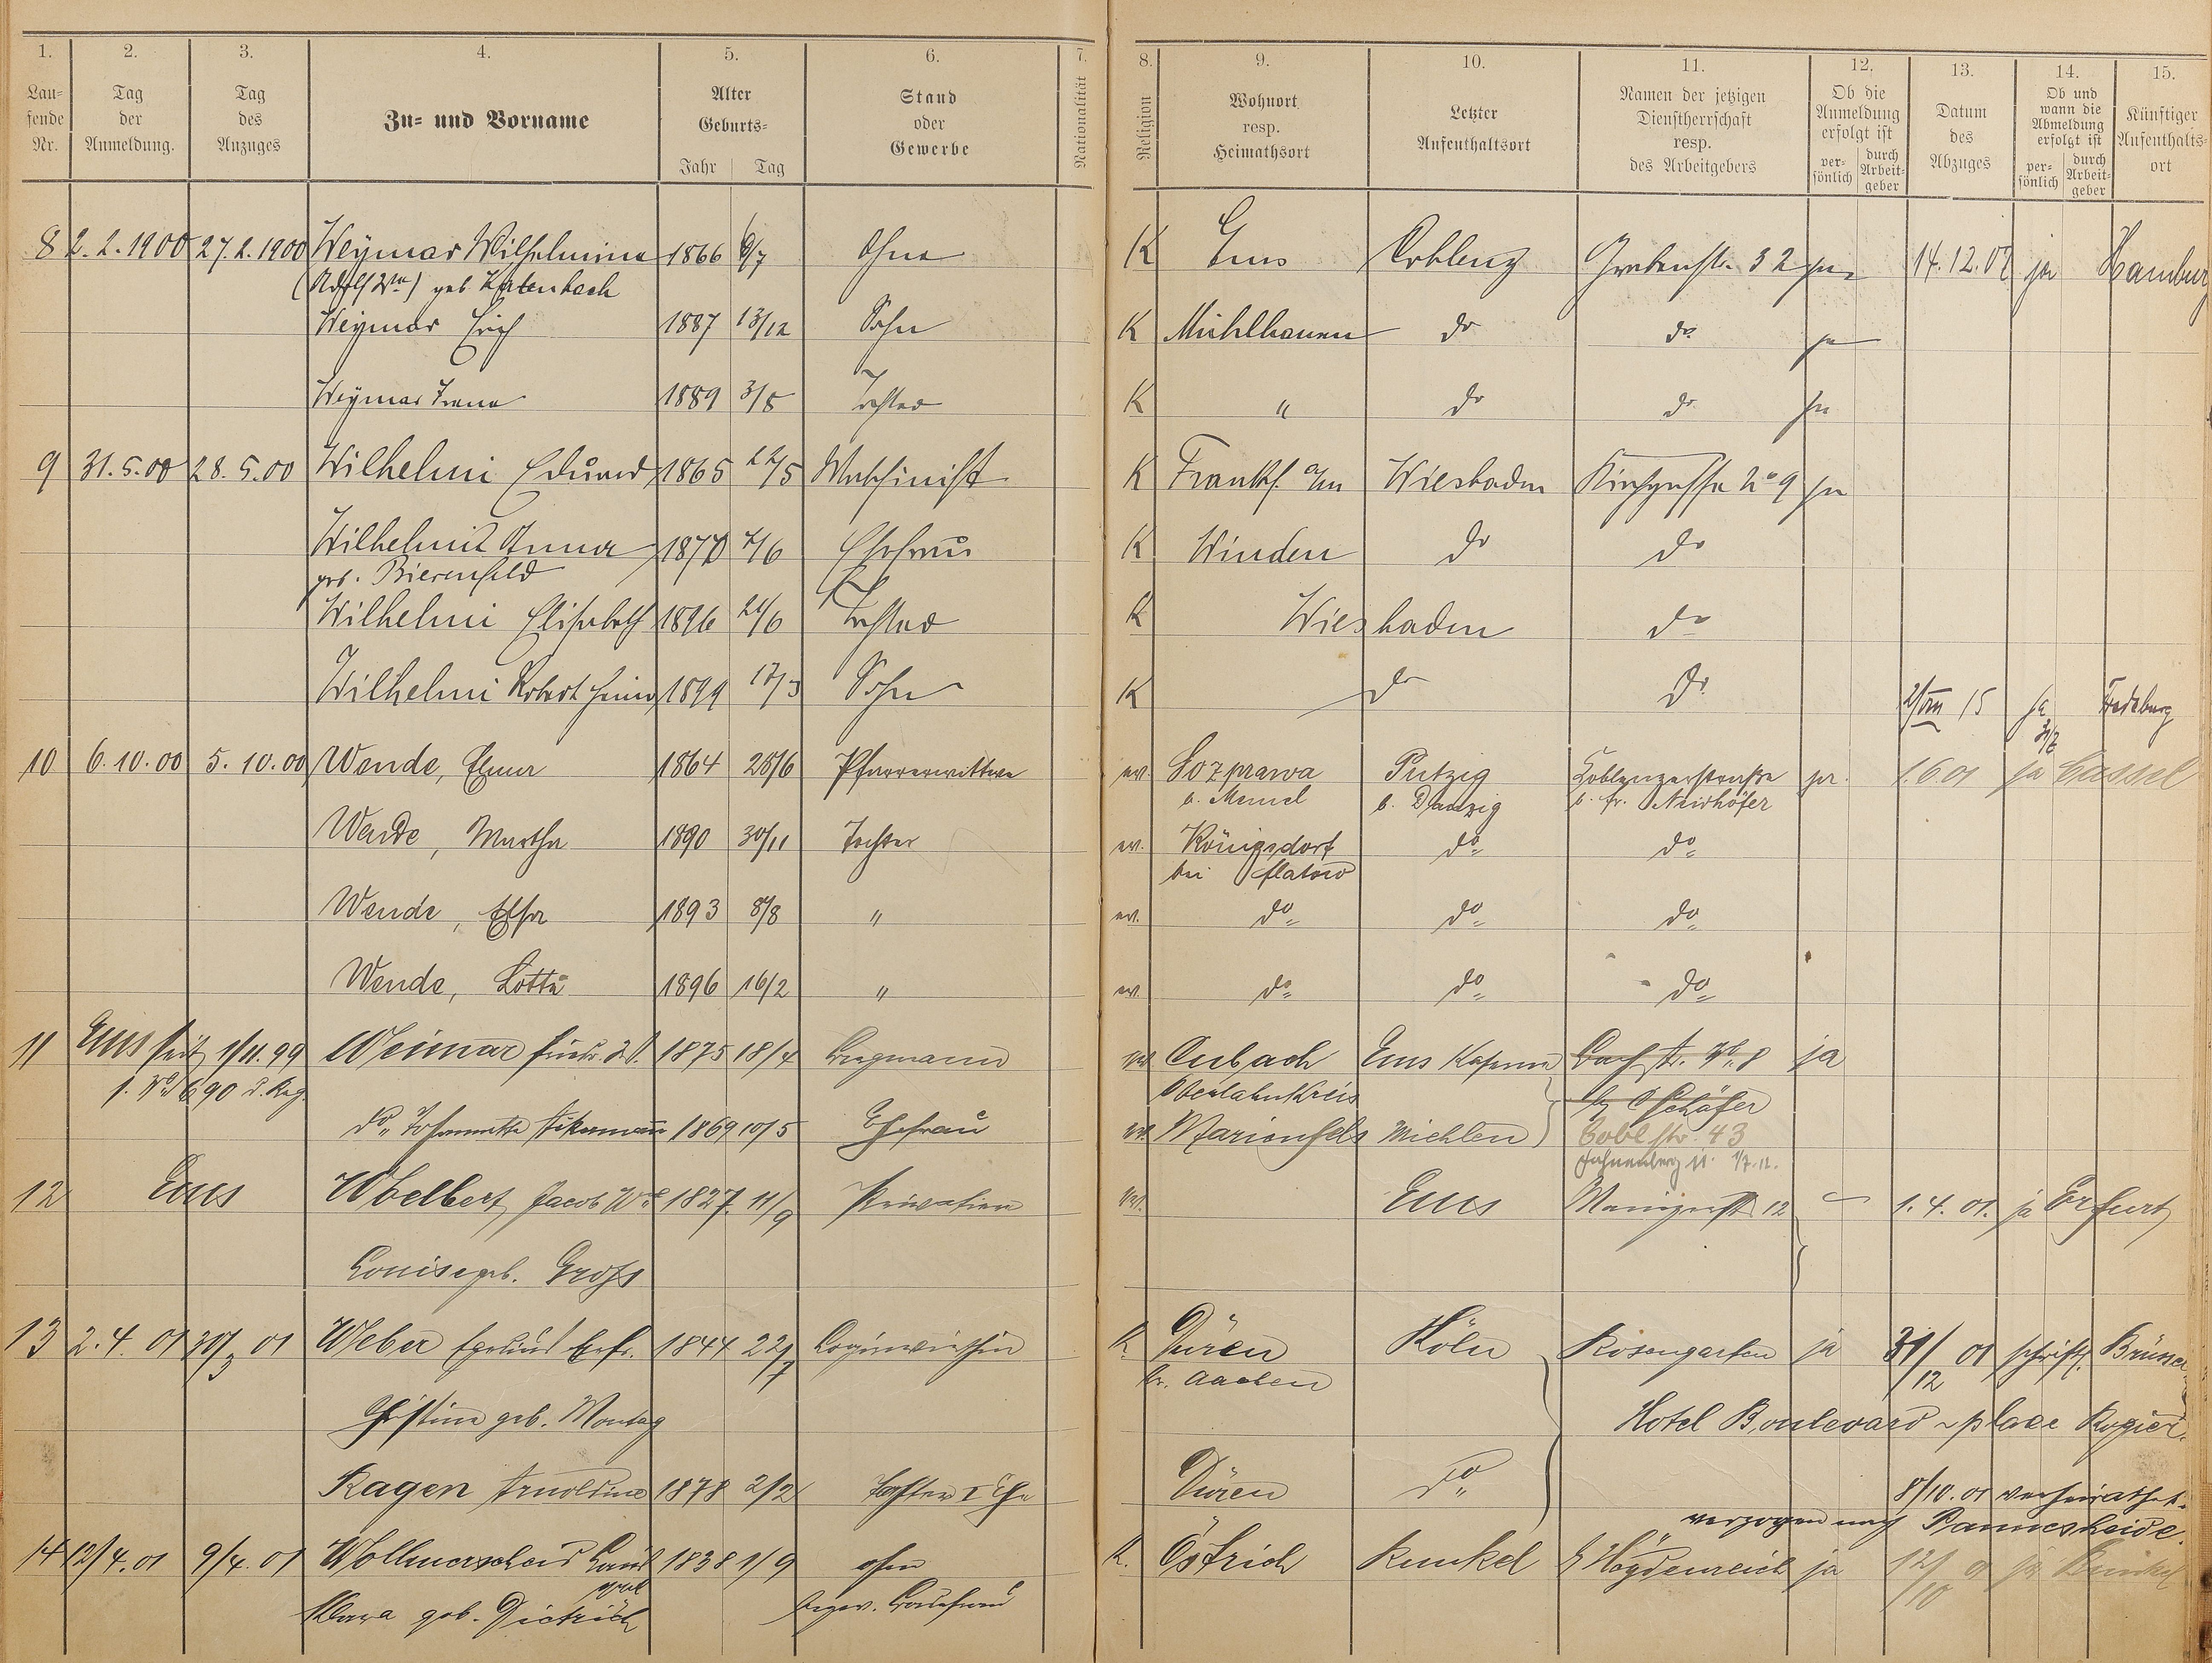 1. 2. 3. 4. 5. 6. 7. 8. 9. 10. 11. 12. 13. 14. 15.
Laufende Nr. Tag der Anmeldung. Tag des Anzuges Zu- und Vorname Alter Geburts- Jahr Tag Stand oder Gewerbe Nationalität Religion Wohnort resp. Heimathsort Letzter Aufenthaltsort Namen der jetzigen Dienstherrschaft resp. des Arbeitgebers Ob die Anmeldung erfolgt ist persönlich durch Arbeitgeber Datum des Abzuges Ob und wann die Abmeldung erfolgt ist persönlich durch Arbeitgeber Künftiger Aufenthaltsort
8 2.2.1900 27.2.1900 Weymar Wilhelmine 1866 6/7 Ohne K Ems Coblenz Grabenstr. 32 ja 14.12.07 ja Hamburg
(Adolf Wwe) geb.
Weymar Erich 1887 13/12 Sohn K Mühlhausen do do ja
Weymar Irene 1889 3/5 Tochter K " do do ja
9 31.5.00 28.5.00 Wilhelmi Eduard 1865 22/5 Maschinist K Frankf. a/m Wiesbaden Kirchgasse No 9 ja
Wilhelmi Anna 1870 7/6 Ehefrau K Winden do do
geb. Bierenfeld
Wilhelmi Elisabeth 1896 24/6 Tochter K Wiesbaden do
Wilhelmi Robert 1899 17/3 Sohn K do do 2/VIII 15 ja
10 6.10.00 5.10.00 Wende, 1864 28/6 Pfarrerwittwe ev. Sozprawa Putzig Koblenzerstraße ja. 1.6.01 ja Cassel
b. Memel b. Danzig b. Fr. Neidhöfer
Wende, Martha 1890 30/11 Tochter ev. Königsdorf do do
bei Flatow
Wende, Elsa 1893 8/8 " ev. do do do
Wende, Lotte 1896 16/2 " ev. do do do
11 Ems seit 1/11.99 Weimar Friedr. 1875 18/4 Bergmann ev. Aubach Ems Kaserne Bachstr. No. 8 ja
1. No 690 d. Reg. Oberlahnkreis bei Schäfer
do Johannette 1869 10/5 Ehefrau ev. Marienfels Miehlen Coblstr. 43
Fahnenberg 11. 1/7.12.
12 Ems Wbelbert Jacob We 1827 11/9 Privatiere ev. Ems 12 1.4.01. ja Erfurt
Louise geb. Groß
13 2.4.01 30/3 01 Weber Egidius Eefr. 1844 22/7 Logirwirthin K Düren Köln Rosengarten ja 31/12 01 schriftl. Brüssel
Kr. Aachen
Christine geb. Montag Hotel Boulevard place Rogier.
Kagen Arnoldine 1878 2/2 Tochter I Ehe Düren do 8/10.01 verheirathet.
verzogen nach Pannesheide.
14 12/4.01 9/4.01 Wollmerscheid 1838 1/9 ohne K. Östrich Runkel Heydenreich ja 12/10 01 ja Runkel
Clara geb. Dietrich